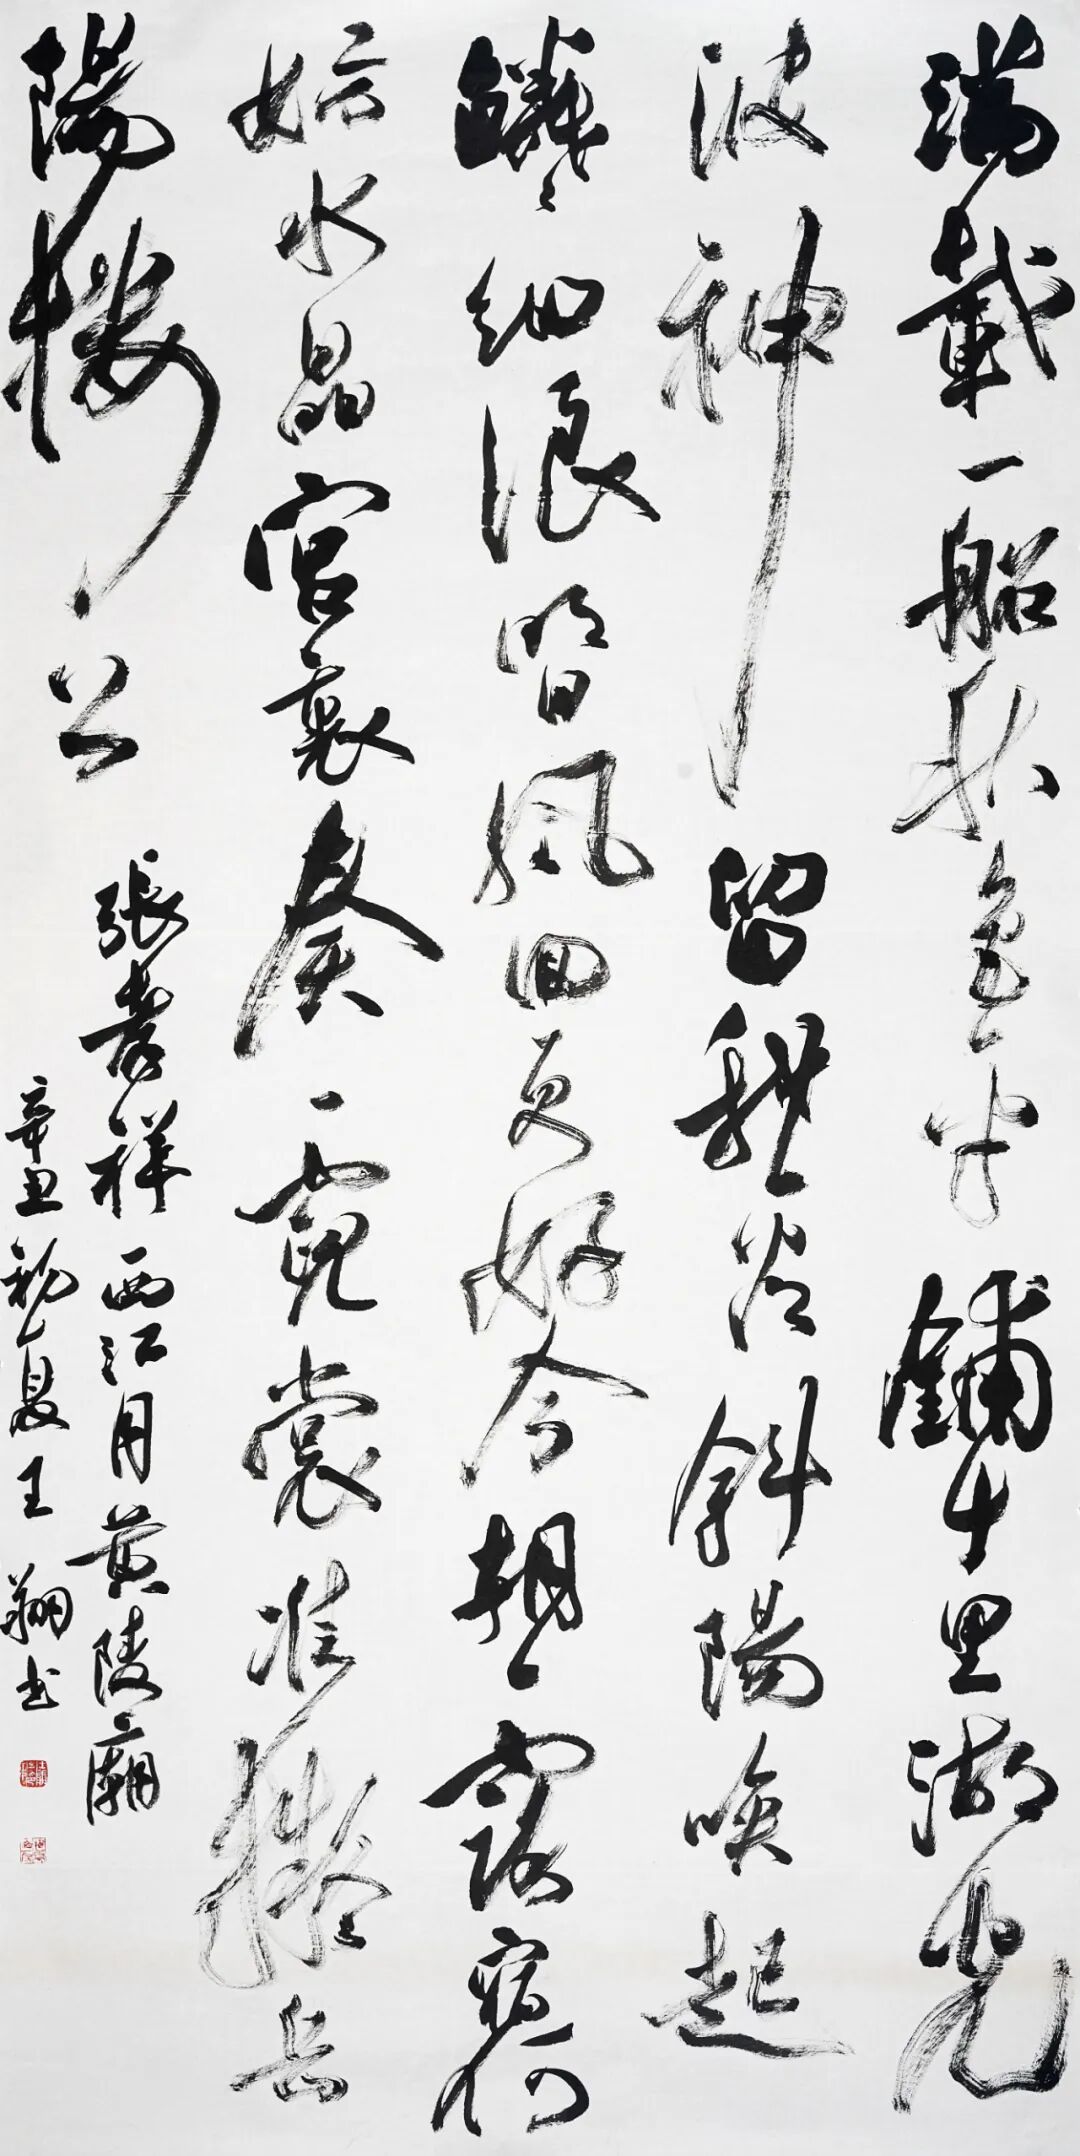 滿載一船秋色平鋪十里湖光
波神留我看斜陽喚起
鱗々細浪明日風回更好今朝露宿何
妨水晶宮裏奏霓裳准擬岳
陽樓上
張孝祥西江月黃陵廟
辛丑初夏王翔书